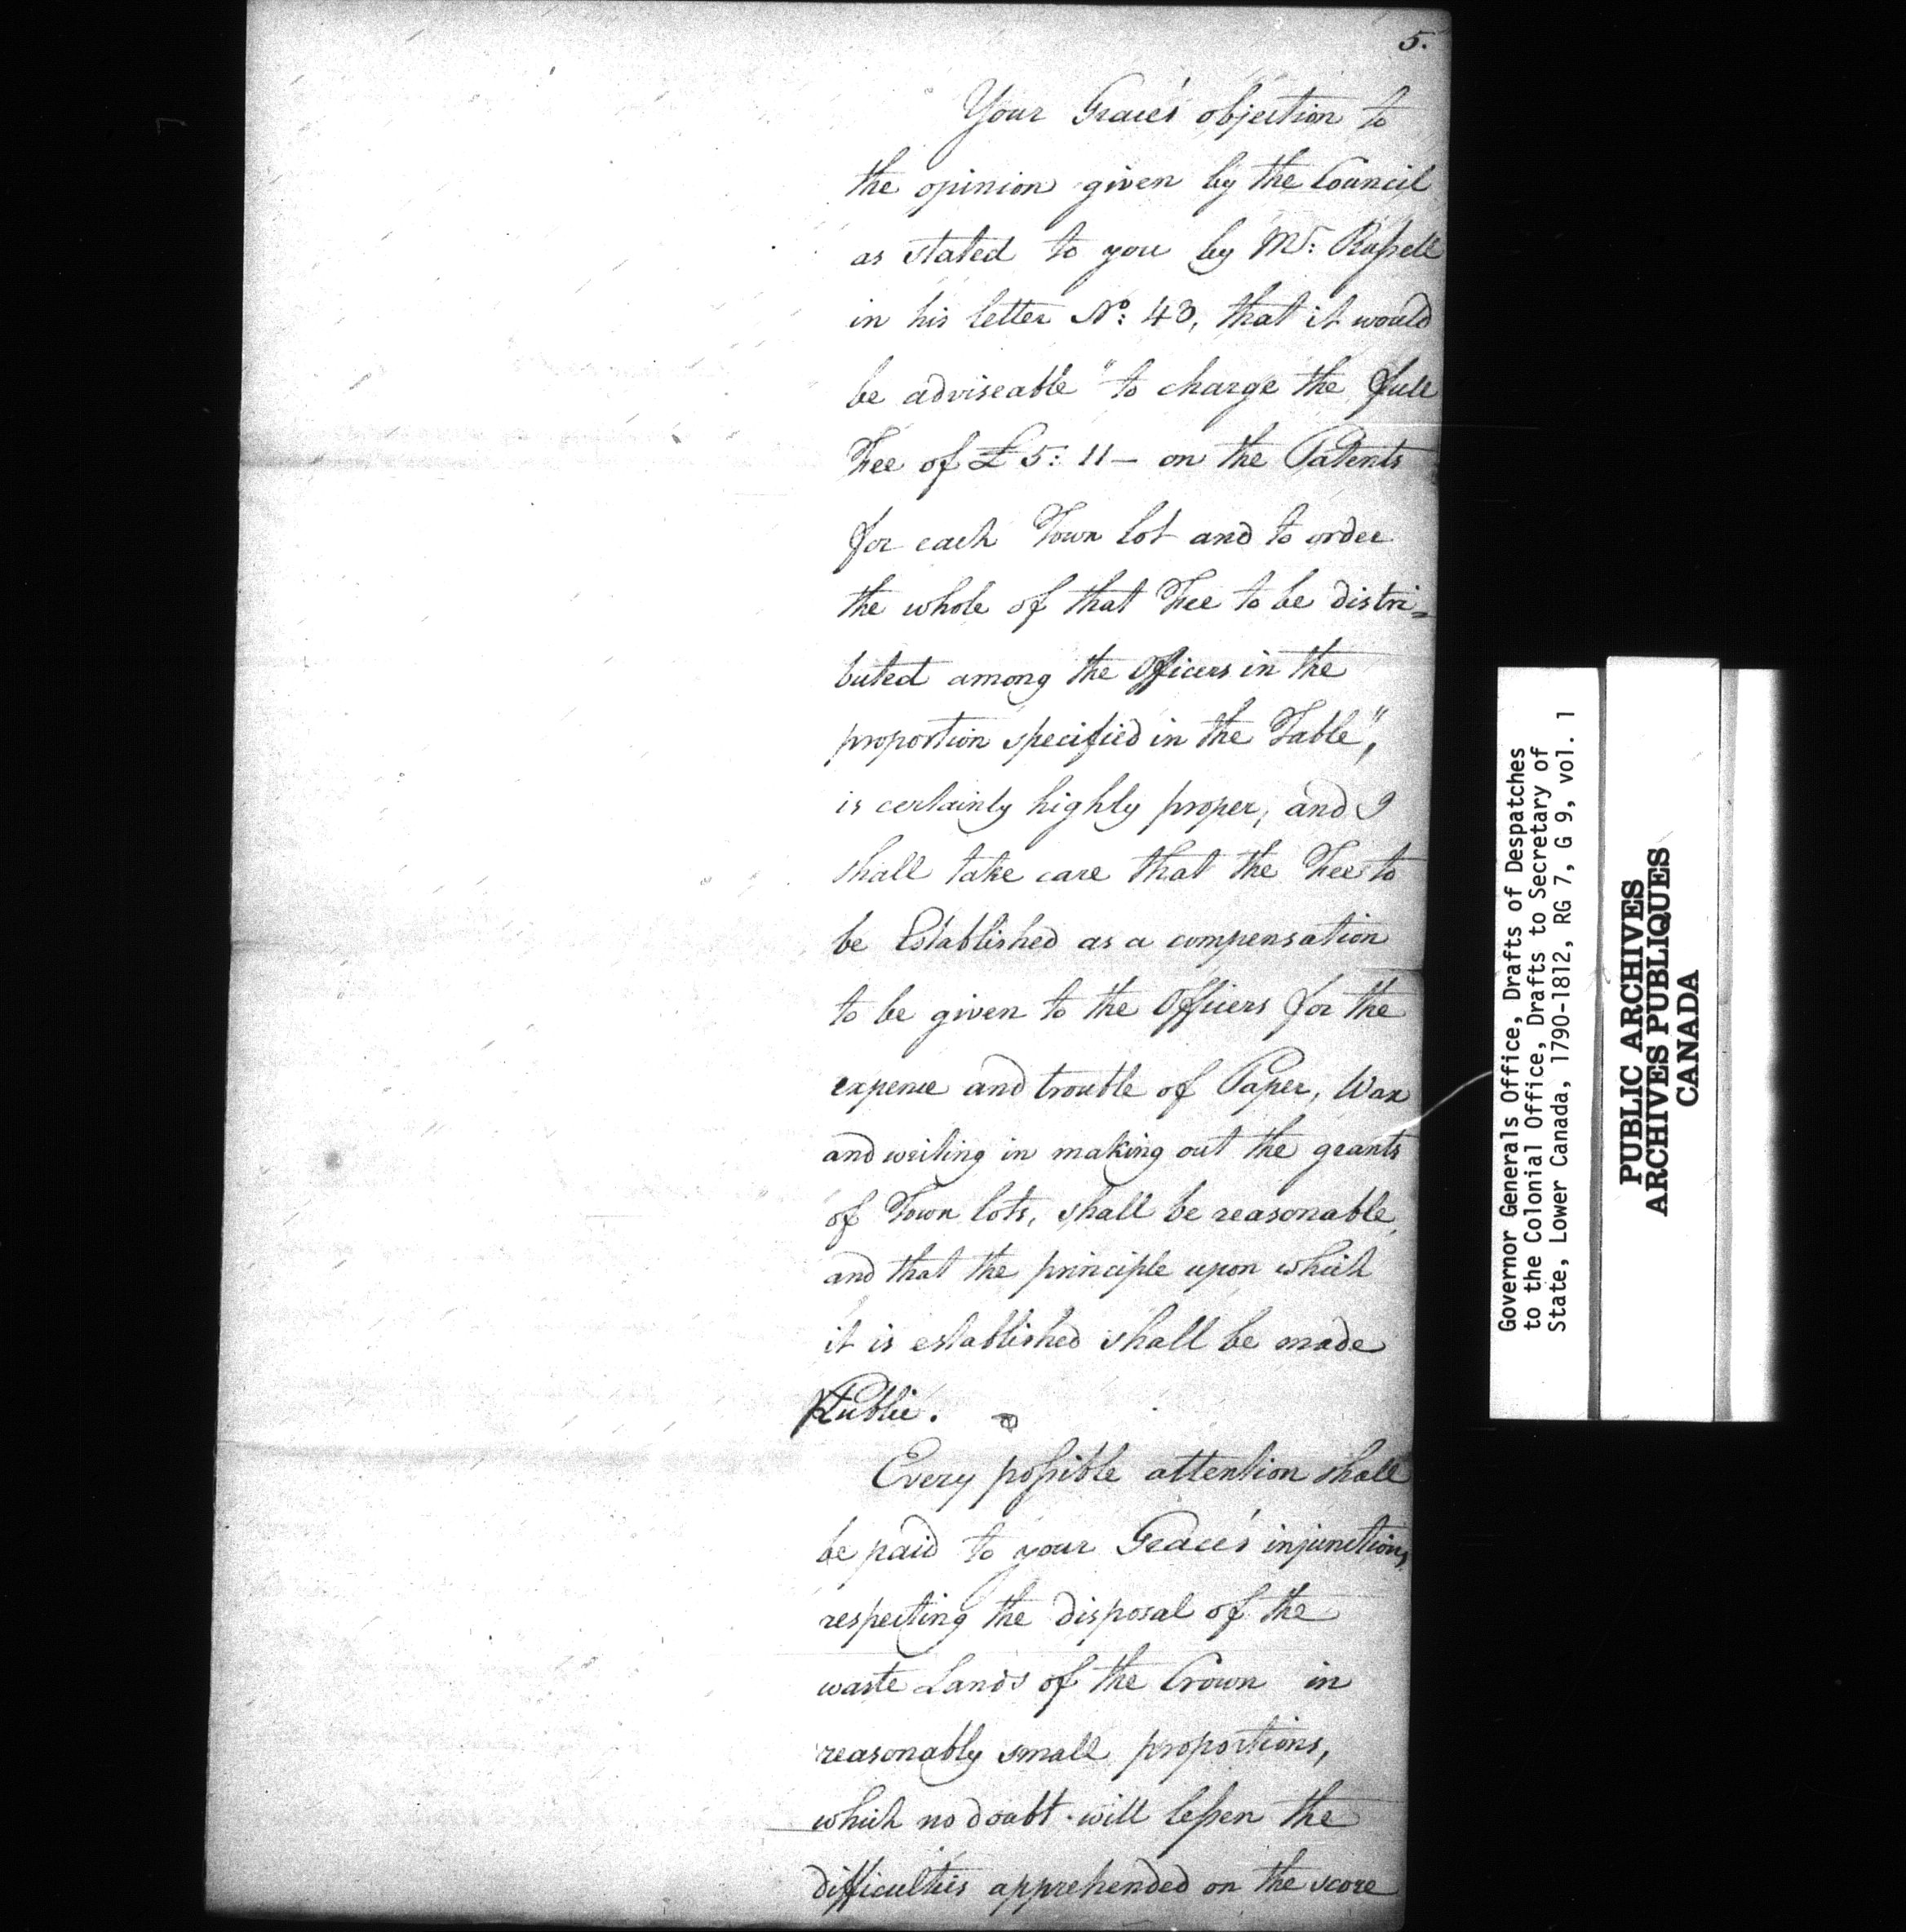 5.
Your Grace's objection to
the opinion given by the Council
as stated to you by Mr: Russell
in his letter No: 43, that it would
be adviseable "to charge the full
Fee of £ 5: 11 — on the Patents
for each Town lot and to order
the whole of that Fee to be distri=
buted among the Officers in the
proportion specified in the Table",
is certainly highly proper, and I
shall take care that the Fee to
be Established as a compensation
to be given to the Officers for the
expence and trouble of Paper, Wax
and writing in making out the grants
of Town lots, shall be reasonable,
and that the principle upon which
it is established shall be made
Public.
Every possible attention shall
be paid to your Grace's injunctions,
respecting the disposal of the
waste Lands of the Crown in
reasonably small proportions,
which no doubt will lessen the
difficulties apprehended on the score
Governor Generals Office, Drafts of Despatches
to the Colonial Office, Drafts to Secretary of
State, Lower Canada, 1790-1812, RG 7, G 9, vol. 1
PUBLIC ARCHIVES
ARCHIVES PUBLIQUES
CANADA